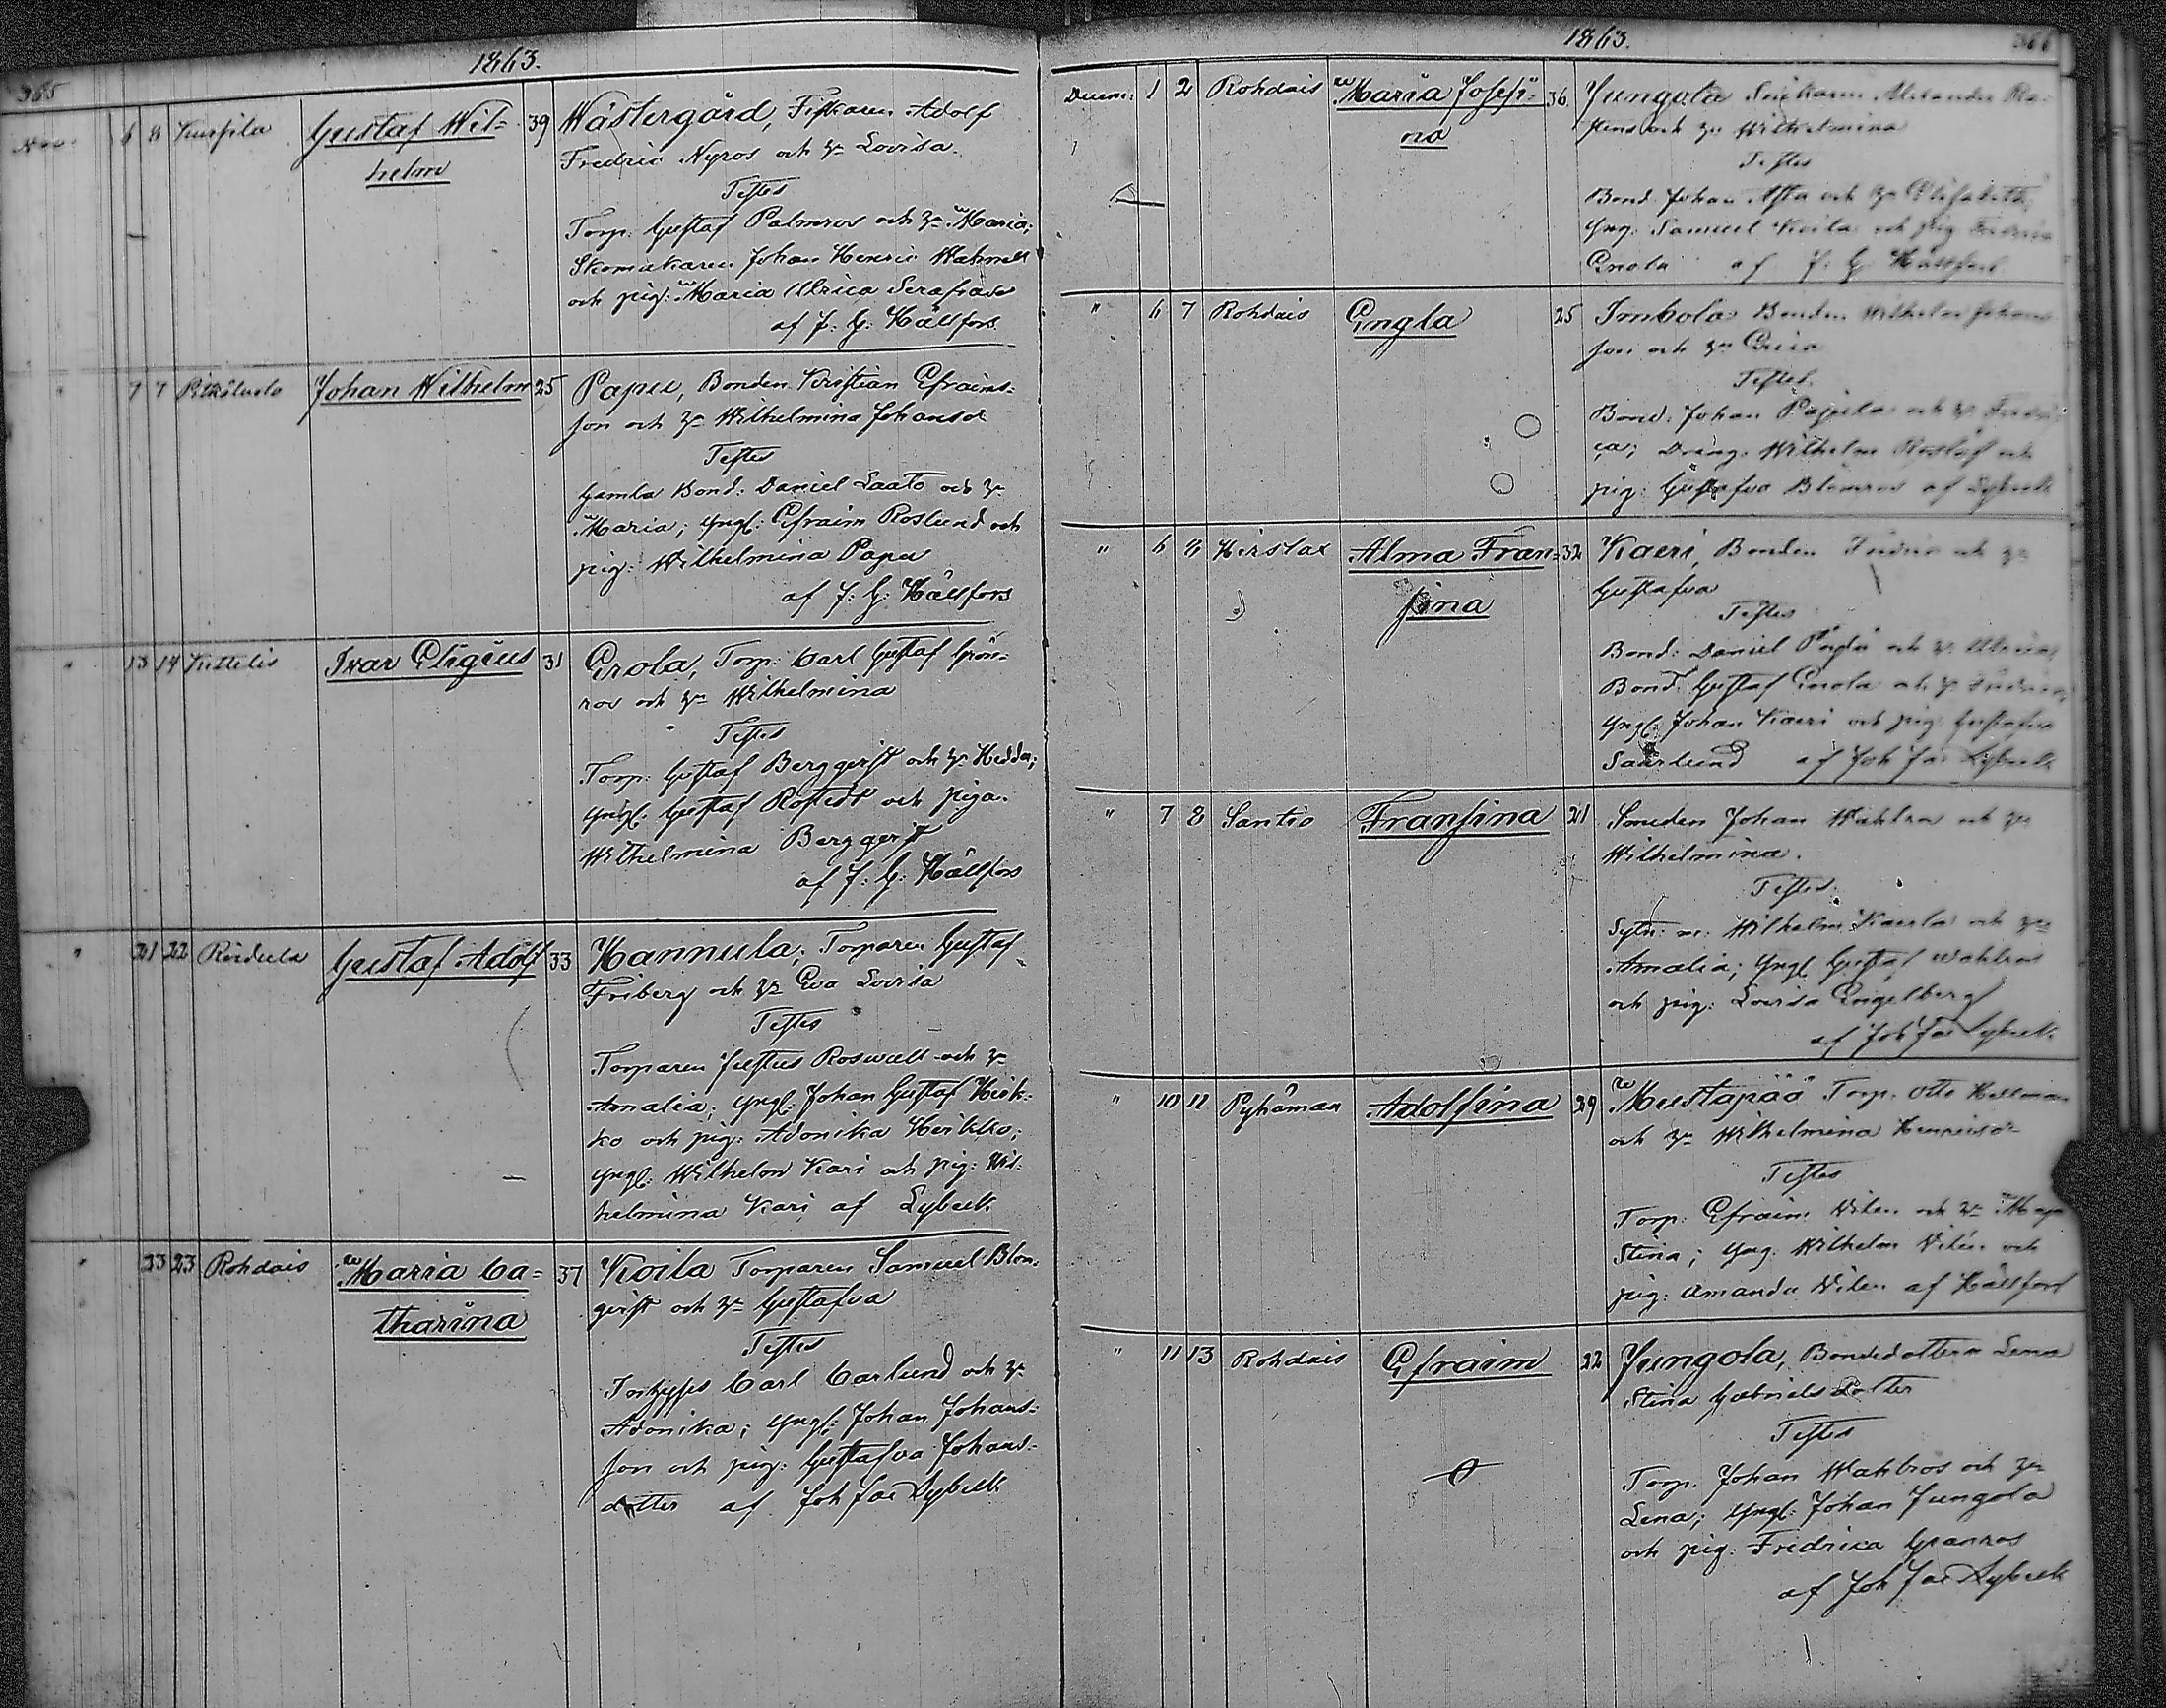 1863.
365
Nov: 6 8 Kuusfila Gustaf Wil= 39 Wästergård, Fiskaren Adolf
helm Fredric Nyros och h:u Lovisa.
Testes
Torp: Gustaf Palmros och h:u Maria;
Skomakaren Johan Henric Wahnell
och pig: Maria Ulrica Serafiasd:r
af J: G: Hällfors
" 7 7 Pitkäluoto Johan Wilhelm 25 Papu, Bonden Kristian Efraims=
son och h:u Wilhelmina Johansd:r
Testes
Gamla Bond: Daniel Laato och h:u
Maria; Yngl: Efraim Roslund och
pig: Wilhelmina Papu
af J: G: Hällfors
" 13 14 Kittelis Ivar Eligius 31 Erola, Torp: Carl Gustaf Grön=
ros och h:u Wilhelmina
Testes
Torp: Gustaf Bergqvist och h:u Hedda;
Yngl: Gustaf Rostedt och piga.
Wilhelmina Bergqvist
af J: G: Hällfors
" 21 22 Gustaf Adolf 33 Hannula; Torparen Gustaf
Friberg och h:u Eva Lovisa
Testes
Torparen Justus Roswall och h:u
Amalia; Yngl: Johan Gustaf Heik=
ko och pig: Adonika Heikko;
Yngl: Wilhelm Kari och pig: Wil=
helmina Kari af Lybeck
" 23 23 Rohdais Maria Ca= 37 Koila Torparen Samuel Blom=
tharina qvist och h:u Gustafva
Testes
Carl Carlund och h:u
Adonika; Yngl: Johan Johans=
son och pig: Gustafva Johans=
dotter af Joh Jac Lybeck
1863.
366
Decem: 1 2 Rohdais Maria Josefi= 36 Jungola Alexander Ro=
na och h:u Wilhelmina
Testes
Bond. Johan och h:u Elisabeth;
Yng. Samuel Koila och pig Fredrica
Erola af J: G: Hällfors
" 6 7 Rohdais Engla 25 Imbola Bonden Wilhelm Johans
son och h:u
Testes
Bond. Johan Pajula och h:u Fredri=
ca; Dräng. Wilhelm Roslöf och
pig: Gustafva Blomros af Lybeck
" 6 8 Hirslax Alma Fran= 32 Kaeri, Bonden Fredric och h:u
sina Gustafva
Testes
Bond: Daniel och h:u Ulrica;
Bond. Gustaf Erola och h:u Fredrica;
Yngl: Johan Kaeri och pig: Gustafva
Saarlund af Joh Jac Lybeck
" 7 8 Santio Fransina 21 Smeden Johan Wahlros och h:u
Wilhelmina.
Testes
Sytn: m: Wilhelm Kaerla och h:u
Amalia; Yngl: Gustaf Wahlros
och pig: Lovisa Engelberg
af Joh Jac Lybeck
" 10 11 Pyhämaa Adolfina 29 Mustapää Torp. Otto Hellman
och h:u Wilhelmina Henricsd:r
Testes
Torp: Efraim Wilen och h:u Maja
Stina; Yng. Wilhelm Wilén och
pig: Amanda Wilen af Hällfors
" 11 13 Rohdais Efraim 22 Jungola, Bondedottern Lena
Stina Gabrielsdotter
Testes
Torp. Johan Wahlros och h:u
Lena; Yngl: Johan Jungola
och pig: Fredrica Granros
af Joh Jac Lybeck